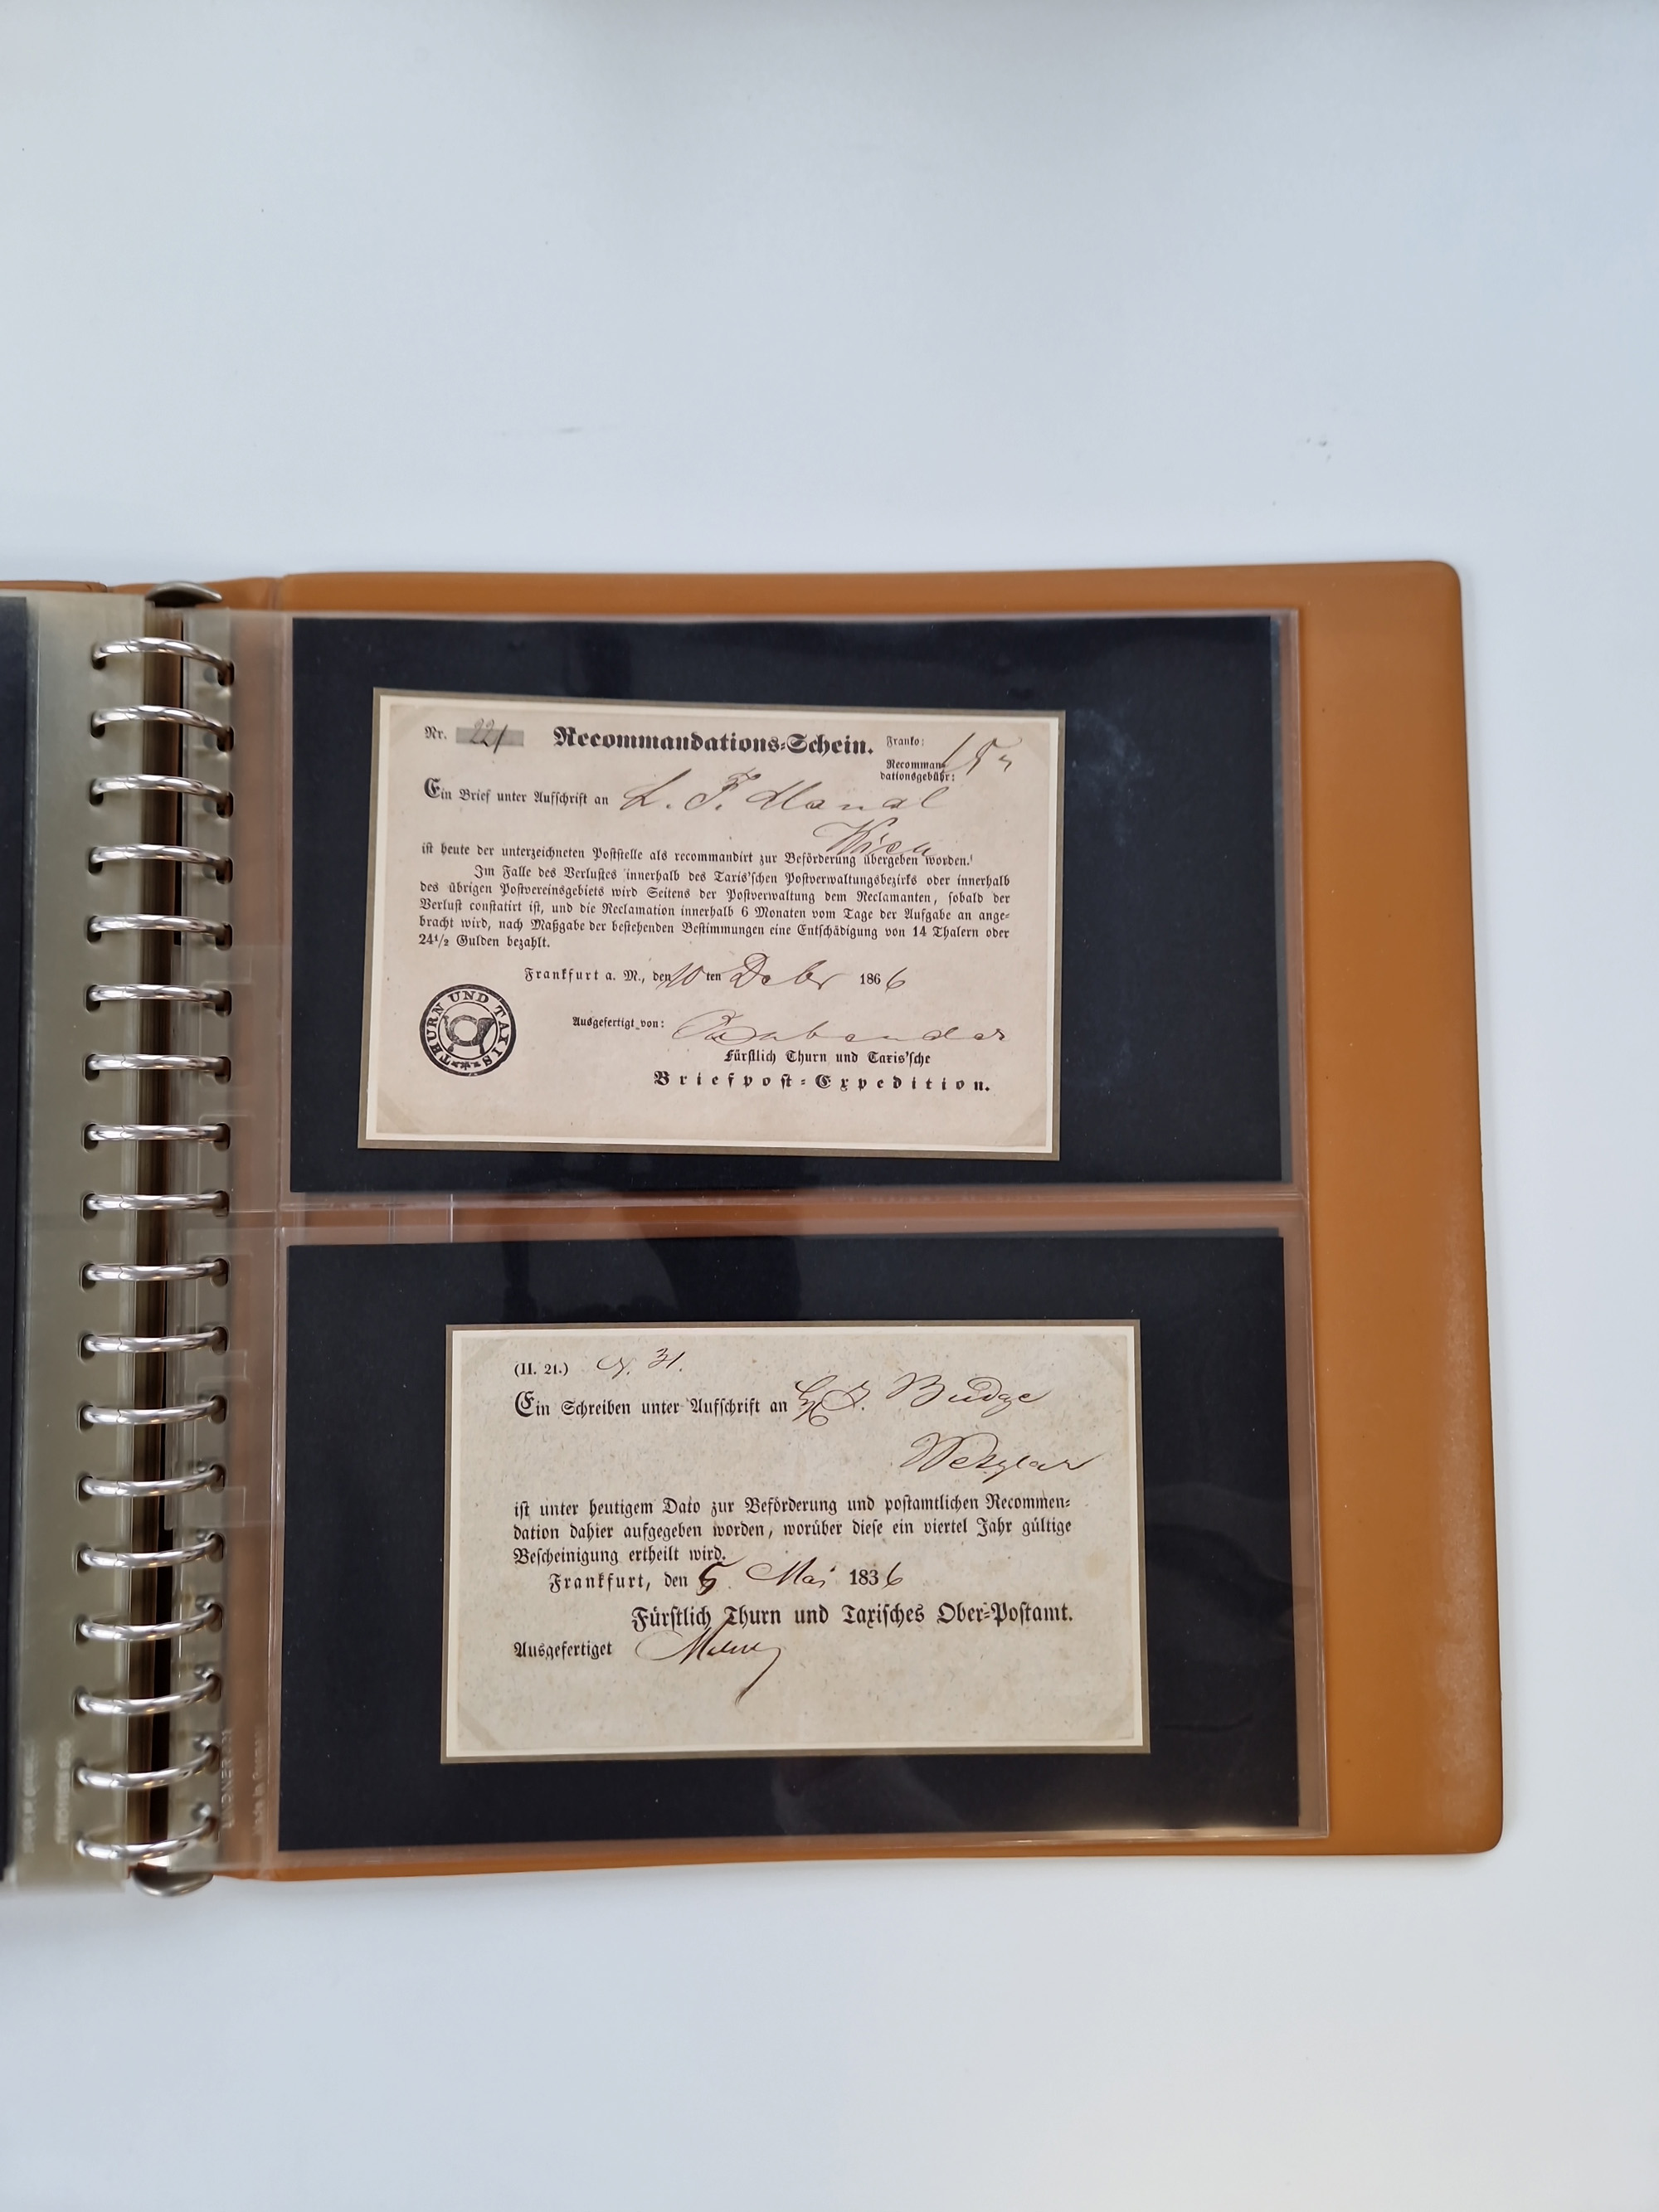 Nr. 221 Recommandations-Schein. Franko:
Recomman-
dationsgebühr:
Ein Brief unter Aufschrift an L. F.
Wien
ist heute der unterzeichneten Poststelle als recommandirt zur Beförderung übergeben worden.
Im Falle des Verlustes innerhalb des Taxis'schen Postverwaltungsbezirks oder innerhalb
des übrigen Postvereinsgebiets wird Seitens der Postverwaltung dem Reclamanten, sobald der
Verlust constatirt ist, und die Reclamation innerhalb 6 Monaten vom Tage der Aufgabe an ange-
bracht wird, nach Maßgabe der bestehenden Bestimmungen eine Entschädigung von 14 Thalern oder
24½ Gulden bezahlt.
Frankfurt a. M., den 10 ten Debr 1866
THURN UND TAXIS
Ausgefertigt von:
Fürstlich Thurn und Taxis'sche
Briefpost-Expedition.
(II. 21.) N. 31.
Ein Schreiben unter Aufschrift an Budge
Wetzlar
ist unter heutigem Dato zur Beförderung und postamtlichen Recommen-
dation dahier aufgegeben worden, worüber diese ein viertel Jahr gültige
Bescheinigung ertheilt wird.
Frankfurt, den 5. Mai 1836
Fürstlich Thurn und Taxisches Ober-Postamt.
Ausgefertiget